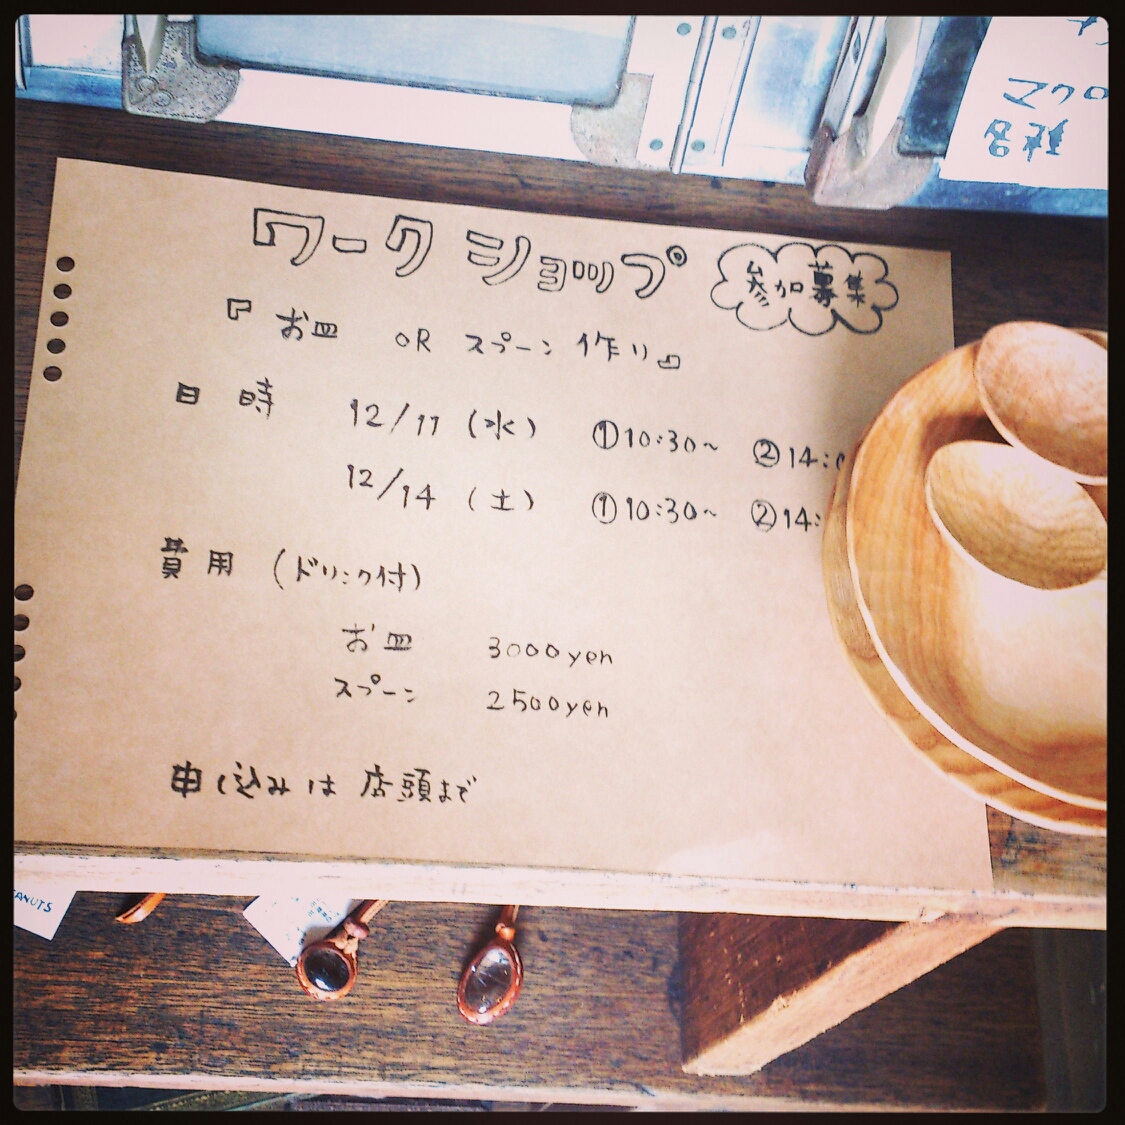 マクロ
各種
ワークショップ
参加募集
『お皿 OR スプーン作り』
日時 12/11 (水) ①10:30~ ②14:0
12/14 (土) ①10:30~ ②14:
費用 (ドリンク付)
お皿 3000yen
スプーン 2500yen
申し込みは店頭まで
EANUTS